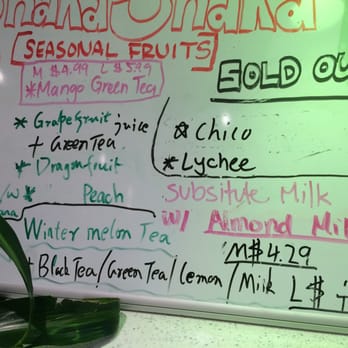 [SEASONAL FRUITS]
M $4.99 L $5.99
*Mango Green Tea
SOLD OU
* Grapefruit juice
+ GreenTea
* Dragonfruit
/w * Peach
* Chico
* Lychee
Subsitute Milk
w/ Almond Mil
Winter melon Tea
M$ 4.29
+ BlackTea/GreenTea/Lemon/Milk L $